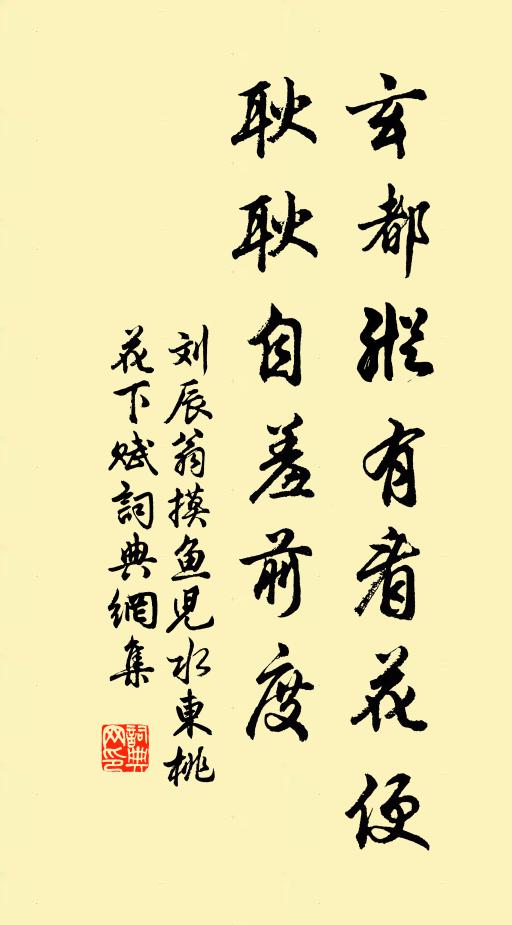 玄都縱有看花便
耿耿自羞前度
刘辰翁摸鱼児水東桃
花下赋詞典網集
詞典
网印